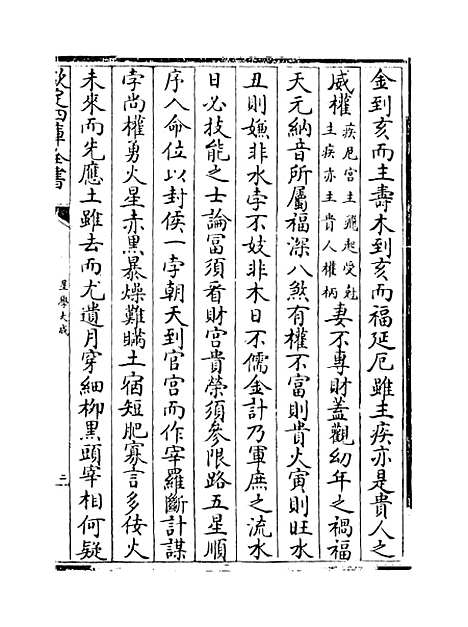 金到亥而主壽木到亥而福延厄雖主疾亦是貴人之
威權疾厄宮主飛起受尅主疾亦主貴人權柄妻不專財蓋觀幼年之禍福
天元納音所屬福深八煞有權不富則貴火寅則旺水
丑則嫌非水孛不妓非木日不儒金計乃軍庶之流水
日必技能之士論冨須看財宮貴榮須參限路五星順
序入命位以封侯一孛朝天到官宮而作宰羅斷計謀
孛尚權勇火星赤黑暴燥難瞞土宿短肥寡言多佞火
未來而先應土雖去而尤遺月穿細柳黒頭宰相何疑
欽定四庫全書
星學大成
三